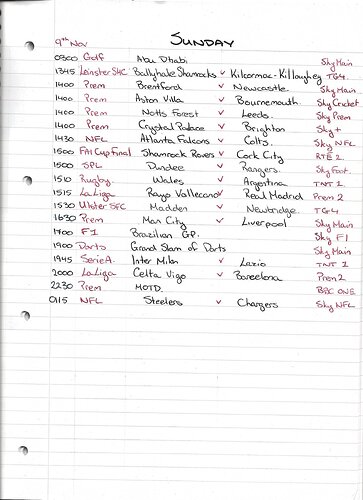 SUNDAY
9th Nov
0300 Golf Abu Dhabi Sky Main
1345 Leinster SHC Ballyhale Shamrocks v Kilcormac-Killoughey TG4.
1400 Prem Brentford v Newcastle Sky Main
1400 Prem Aston Villa v Bournemouth. Sky Cricket
1400 Prem Notts Forest v Leeds. Sky Prem
1400 Prem Crystal Palace v Brighton Sky +
1430 NFL Atlanta Falcons v Colts. Sky NFL
1500 FAI Cup Final Shamrock Rovers v Cork City RTE 2.
1500 SPL Dundee v Rangers. Sky Foot.
1510 Rugby Wales v Argentina TNT 1
1515 LaLiga Rayo Vallecano v Real Madrid Prem 2
1530 Ulster SFC Madden v Newbridge. TG4
1630 Prem Man City v Liverpool Sky Main
1700 F1 Brazilian GP. Sky F1
1900 Darts Grand Slam of Darts Sky Main
1945 Serie A. Inter Milan v Lazio TNT 2
2000 LaLiga Celta Vigo v Barcelona Prem 2
2230 Prem MOTD. BBC ONE
0115 NFL Steelers v Chargers Sky NFL